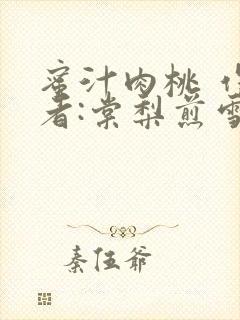 蜜汁肉桃 作
者:棠梨煎雪
秦伍爷